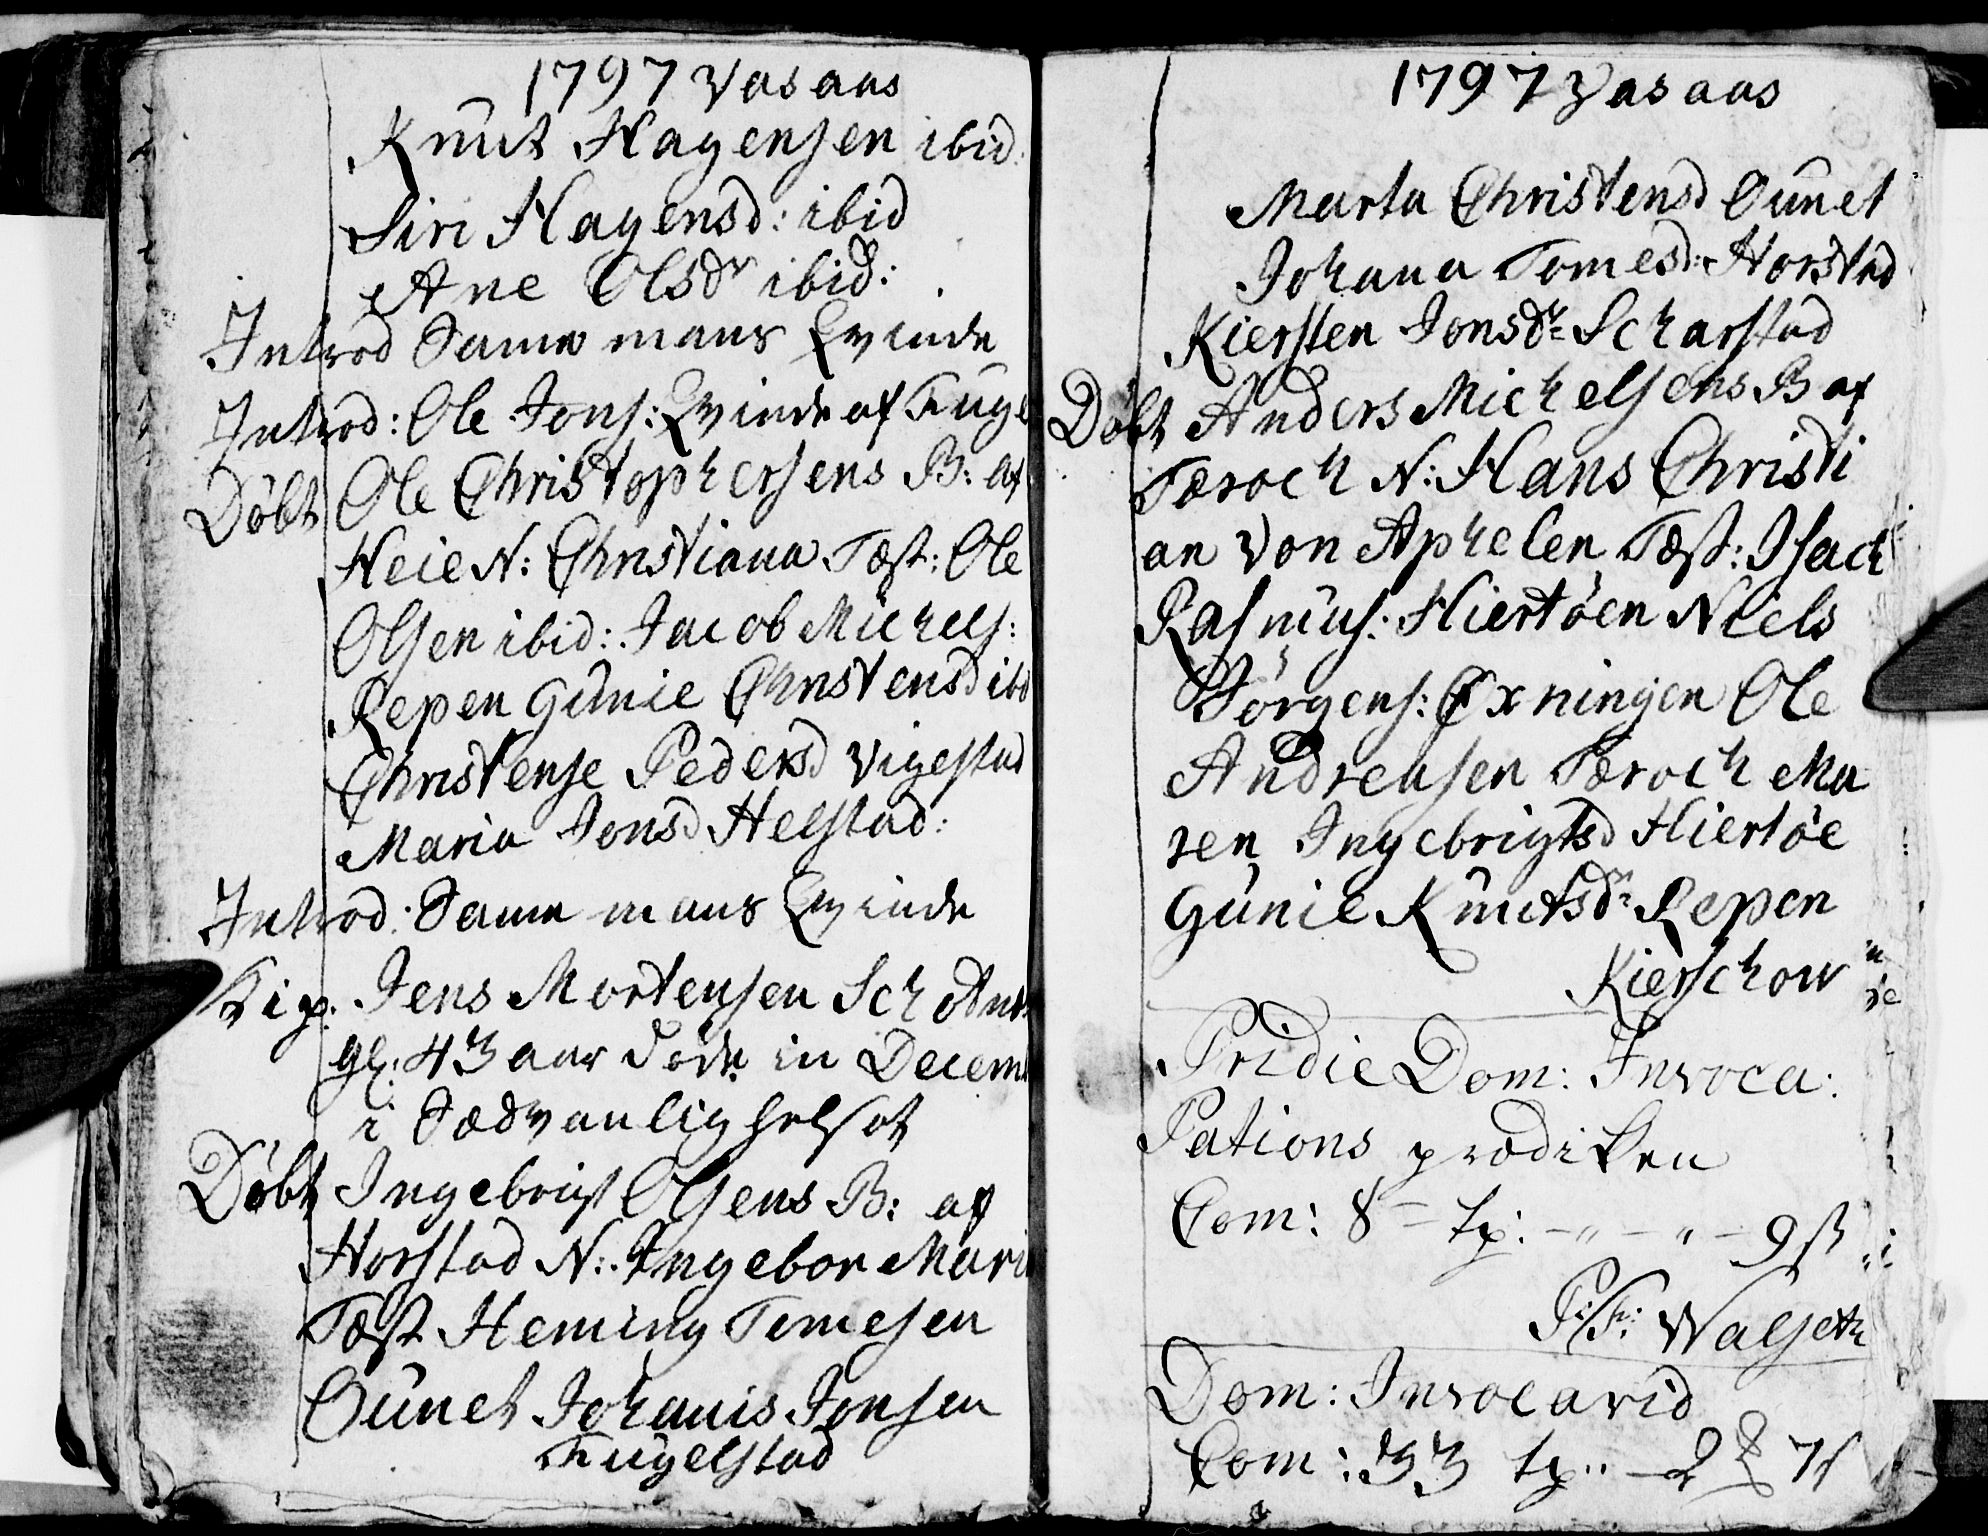 1797 Vasaas
Knut Hagensen ibid
Siri Hagensd: ibid
Ane Olsdr ibid:
Introd Same mans Qvinde
Introd: Ole Jons: Qvinde af Fuge
Döbt Ole Christophersens B: af
Heie N: Christiana Test: Ole
Olsen ibid: Jacob Michels:
Repen Gunie Christensd ibd
Christense Pedersd Vigestad
Maria Jonsd Helstad:
Introd: Same mans Qvinde
Jens Mortensen
gl: 43 aar döde in Decem
i Sædvanlig
Döbt Ingebrigt Olsens B: af
Horstad N: Ingebor Mari
Test Heming Tomesen
Ounet Johanis Jonsen
Fugelstad
1797 Vasaas
Marta Christensd Ounet
Johana Tomesd: Horstad
Kiersten Jonsdr Scharstad
Döbt Anders Michelsens B af
Teroch N: Hans Christi
an Von Aphelen Test: Isach
Rasmus: Hiertöen Niels
Jörgens: Oxningen Ole
Andreasen Teroch Ma
ren Ingebrigtsd Hiertöe
Gunie Knutsdr Repen
Kierschow
Pridie Dom: Invoca:
Pations prediken
Com: 8 - tp: - " - " - 9 ß
Walseth
Dom: Invocavid
Com: 33 tp: - 2 7